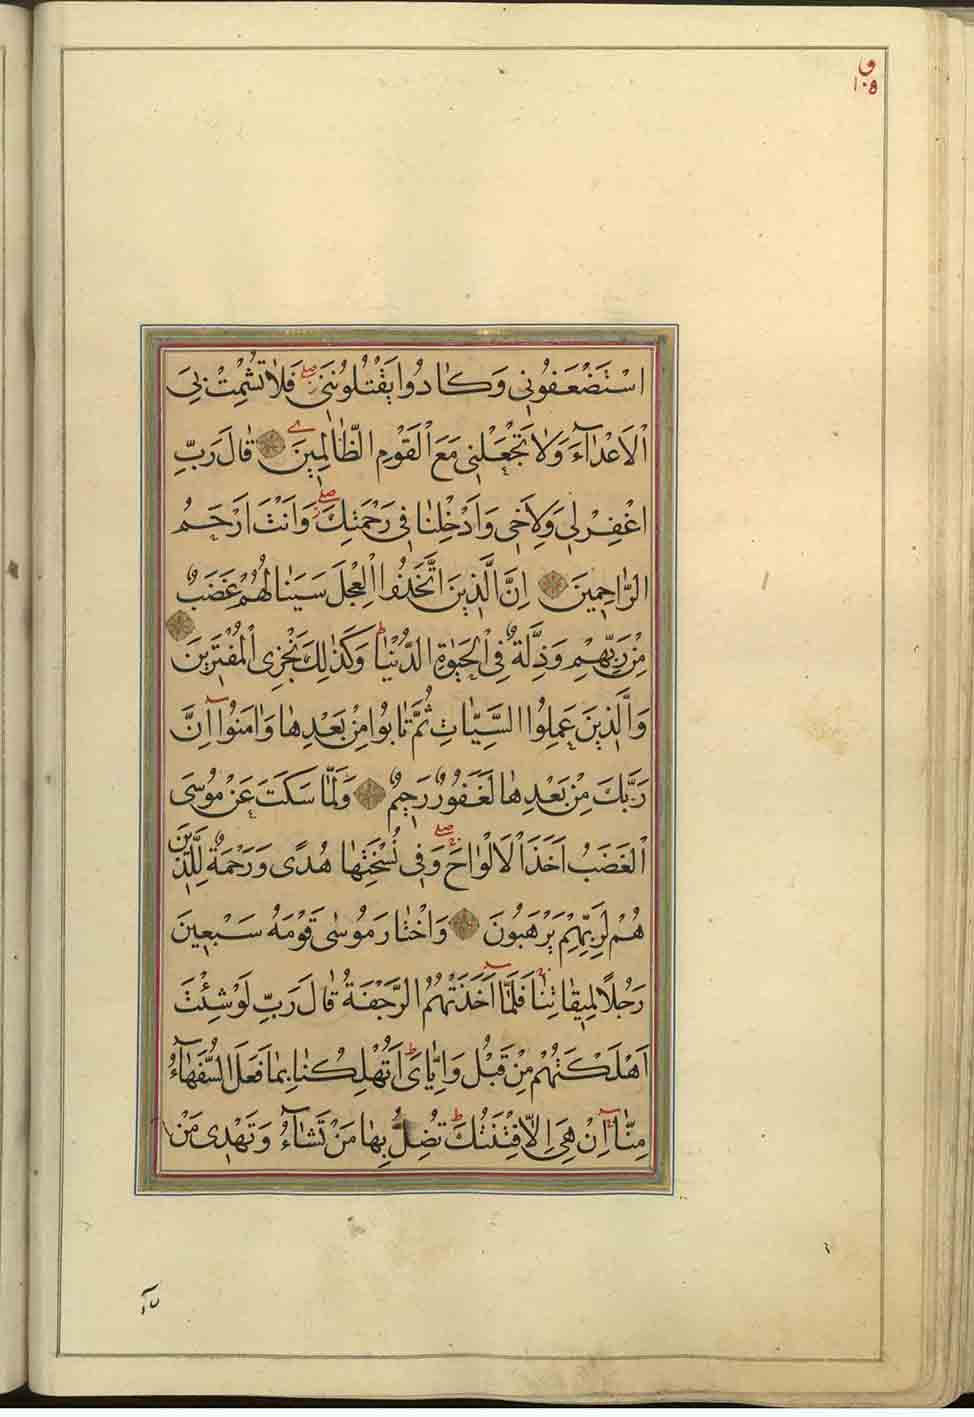 ق
١٠٥
اسْتَضْعَفُونِي وَكَادُوا يَقْتُلُونَنِي فَلَا تُشْمِتْ بِيَ
الْأَعْدَاءَ وَلَا تَجْعَلْنِي مَعَ الْقَوْمِ الظَّالِمِينَ قَالَ رَبِّ
اغْفِرْ لِي وَلِأَخِي وَأَدْخِلْنَا فِي رَحْمَتِكَ وَأَنْتَ أَرْحَمُ
الرَّاحِمِينَ إِنَّ الَّذِينَ اتَّخَذُوا الْعِجْلَ سَيَنَالُهُمْ غَضَبٌ
مِنْ رَبِّهِمْ وَذِلَّةٌ فِي الْحَيٰوةِ الدُّنْيَا وَكَذٰلِكَ نَجْزِي الْمُفْتَرِينَ
وَالَّذِينَ عَمِلُوا السَّيِّئَاتِ ثُمَّ تَابُوا مِنْ بَعْدِهَا وَاٰمَنُوا إِنَّ
رَبَّكَ مِنْ بَعْدِهَا لَغَفُورٌ رَحِيمٌ وَلَمَّا سَكَتَ عَنْ مُوسَى
الْغَضَبُ أَخَذَ الْأَلْوَاحَ وَفِي نُسْخَتِهَا هُدًى وَرَحْمَةٌ لِلَّذِينَ
هُمْ لِرَبِّهِمْ يَرْهَبُونَ وَاخْتَارَ مُوسٰى قَوْمَهُ سَبْعِينَ
رَجُلًا لِمِيقَاتِنَا فَلَمَّا أَخَذَتْهُمُ الرَّجْفَةُ قَالَ رَبِّ لَوْ شِئْتَ
أَهْلَكْتَهُمْ مِنْ قَبْلُ وَإِيَّايَ أَتُهْلِكُنَا بِمَا فَعَلَ السُّفَهَاءُ
مِنَّا إِنْ هِيَ إِلَّا فِتْنَتُكَ تُضِلُّ بِهَا مَنْ تَشَاءُ وَتَهْدِي مَنْ